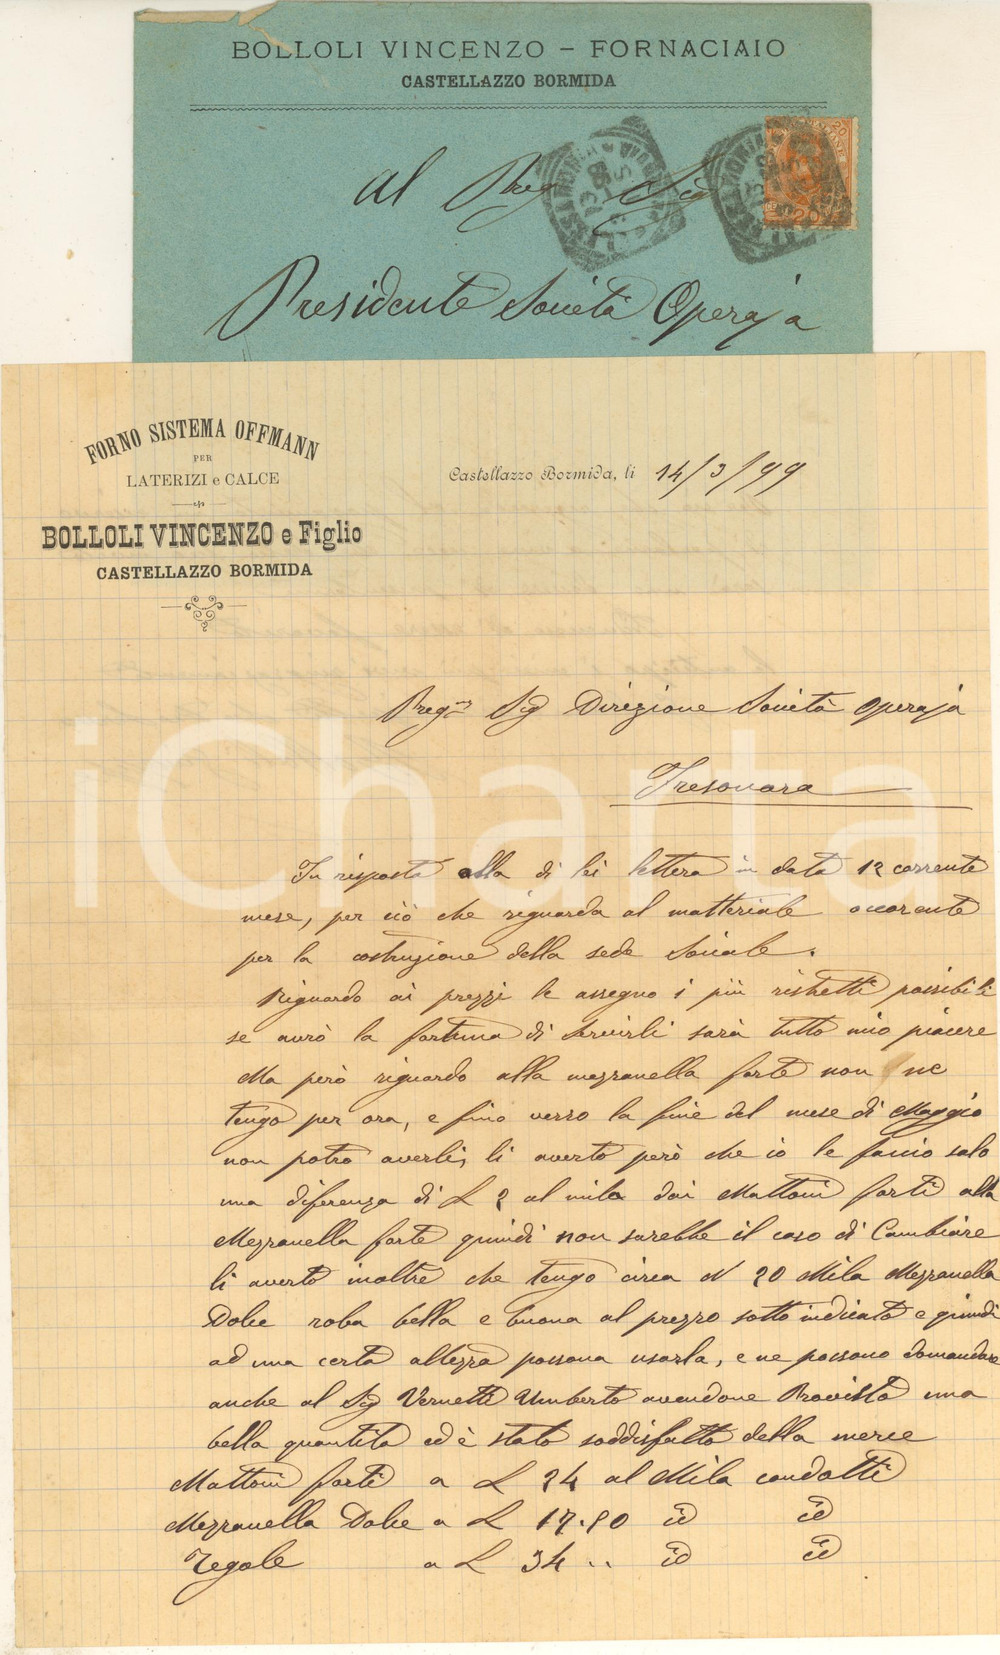 BOLLOLI VINCENZO – FORNACIAIO
CASTELLAZZO BORMIDA
20
20
al Preg Sig
Presidente Società Operaja
FORNO SISTEMA OFFMANN
PER
LATERIZI e CALCE
BOLLOLI VINCENZO e Figlio
CASTELLAZZO BORMIDA
Castellazzo Bormida, li 14/3/99
Preg Sig Direzione Società Operaja
Fresonara
iCharta
In risposta alla di lei lettera in data 12 corrente
mese, per ciò che riguarda al matteriale occorente
per la costruzione della sede Sociale.
Riguardo ai prezzi le assegno i più ristretti possibili
se avrò la fortuna di Servirli sarà tutto mio piacere
Ma però riguardo alla mezzanella forte non ne
tengo per ora, e fino verso la fine del mese di Maggio
non potrò averli, li averto però che io le faccio solo
una diferenza di L 2 al mila dai Mattoni forti alla
Mezzanella forte quindi non sarebbe il caso di Cambiare
li averto inoltre che tengo circa N 20 Mila Mezzanella
Dolce roba bella e buona al prezzo sotto indicato e quindi
ad una certa altezza possono usarla, e ne possono domandare
anche al Sig Vernetti Umberto avendone Provisto una
bella quantità ed è stato soddisfatto della merce
Mattoni forti a L 24 al Mila condotti
Mezzanella Dolce a L 17.50 id id
Tegole a L 34 .. id id